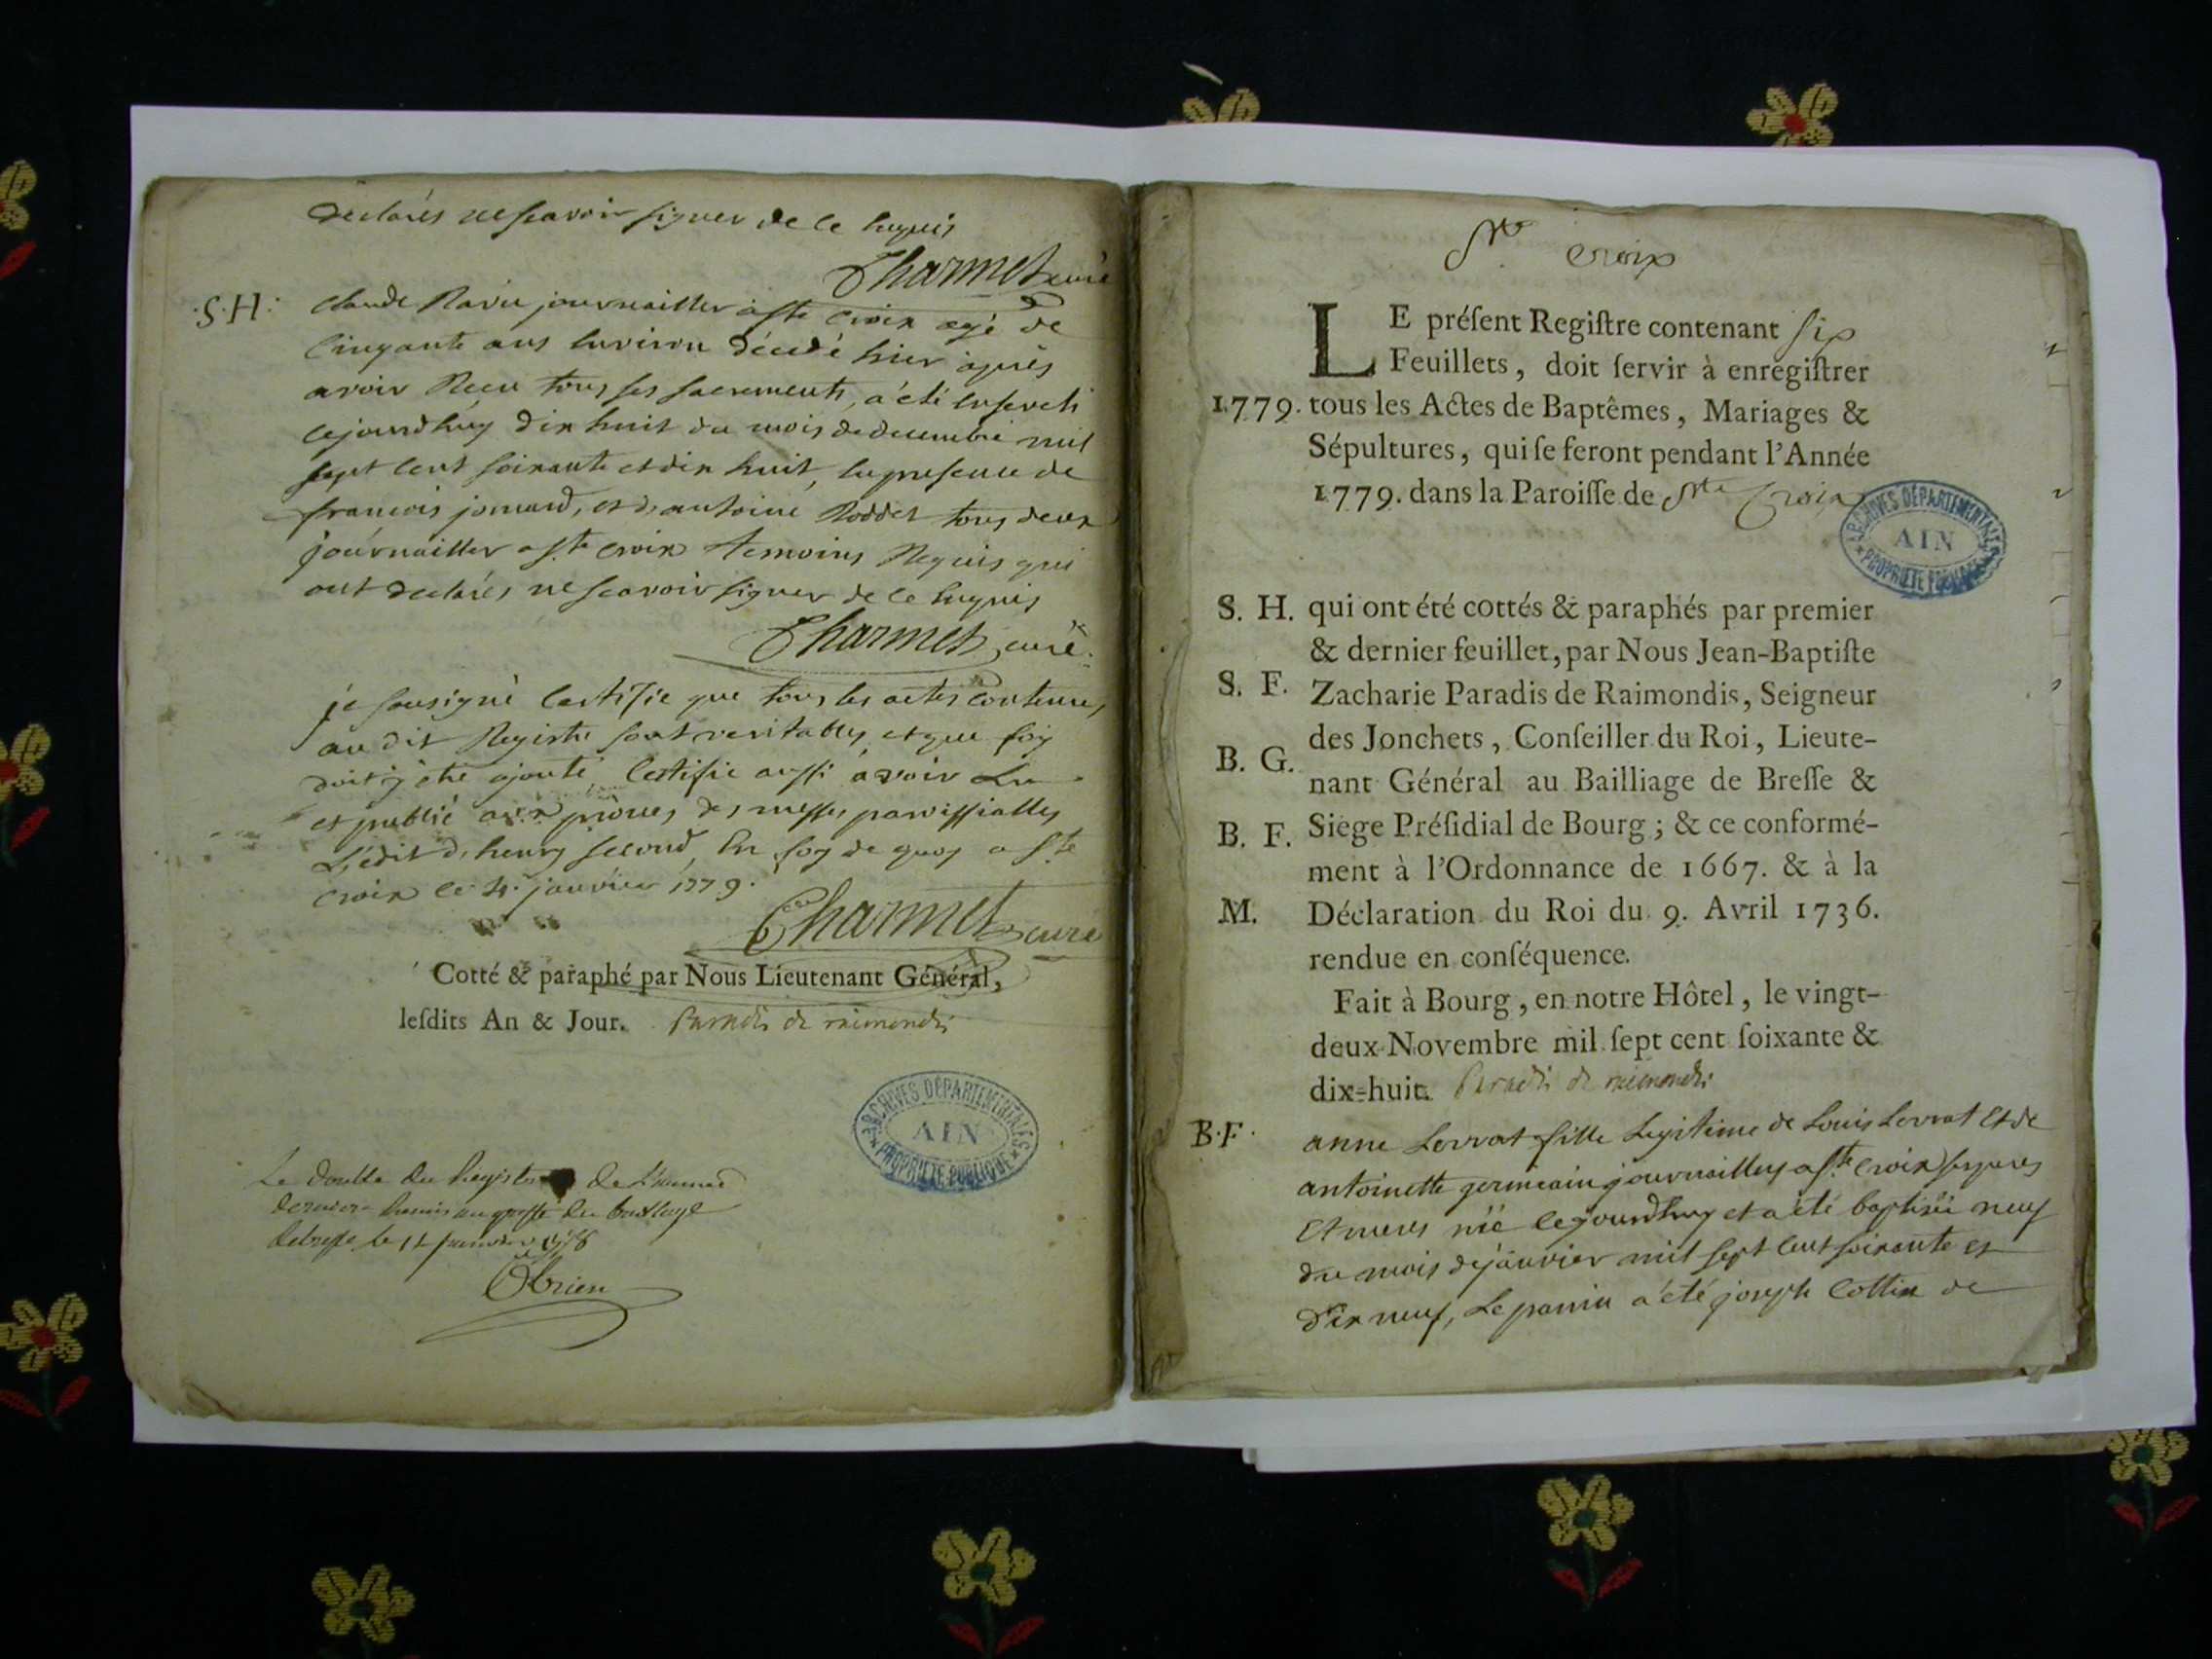 declarés ne scavoir signer de ce enquis
Charmet curé
S. H. Claude Ravie journailler a ste Croix agé de
Cinquante ans Environ décédé hier après
avoir Receu tous ses sacrements, a été Enseveli
cejourdhuy dix huit du mois de decembre mil
sept cent soixante et dix huit, En presence de
francois jomard, et d'antoine Roddet tous deux
journailler a ste Croix temoins Requis qui
ont declarés ne scavoir signer de ce Enquis
Charmet, curé.
je sousigné Certifie que tous les actes contenus
au dit Registre sont veritables, et que foy
doit y etre ajouté, Certifie aussi avoir Lu
et publié aux prônes des messes paroissialles
L'édit d'henry second, En foy de quoy a Ste
Croix le 4. janvier 1779.
Charmet curé
Cotté & paraphé par Nous Lieutenant Général,
leſdits An & Jour. Paradis de raimondis
Le double du Registre de L'année
derniere Remis au greffe du bailliage
de bresse le janvier
Obrien
Ste Croix
LE préſent Regiſtre contenant six
Feuillets, doit ſervir à enregiſtrer
1779. tous les Actes de Baptêmes, Mariages &
Sépultures, qui ſe feront pendant l'Année
1779. dans la Paroiſſe de Ste Croix
ARCHIVES DÉPARTEMENTALES
AIN
PROPRIÉTÉ PUBLIQUE
S. H. qui ont été cottés & paraphés par premier
& dernier feuillet, par Nous Jean-Baptiſte
S. F. Zacharie Paradis de Raimondis, Seigneur
des Jonchets, Conſeiller du Roi, Lieute-
B. G. nant Général au Bailliage de Breſſe &
B. F. Siége Préſidial de Bourg; & ce conformé-
ment à l'Ordonnance de 1667. & à la
M. Déclaration du Roi du 9. Avril 1736.
rendue en conſéquence.
Fait à Bourg, en notre Hôtel, le vingt-
deux Novembre mil ſept cent ſoixante &
dix-huit. Paradis de raimondis
B. F. anne Lerrat fille Legitime de Louis Lerrat Et de
antoinette germain journaillers a ste Croix ses peres
Et meres née cejourdhuy et a été baptisée neuf
du mois de janvier mil sept cent soixante et
dix neuf, Le parrin a été joseph Collin de
ARCHIVES DÉPARTEMENTALES
AIN
PROPRIÉTÉ PUBLIQUE